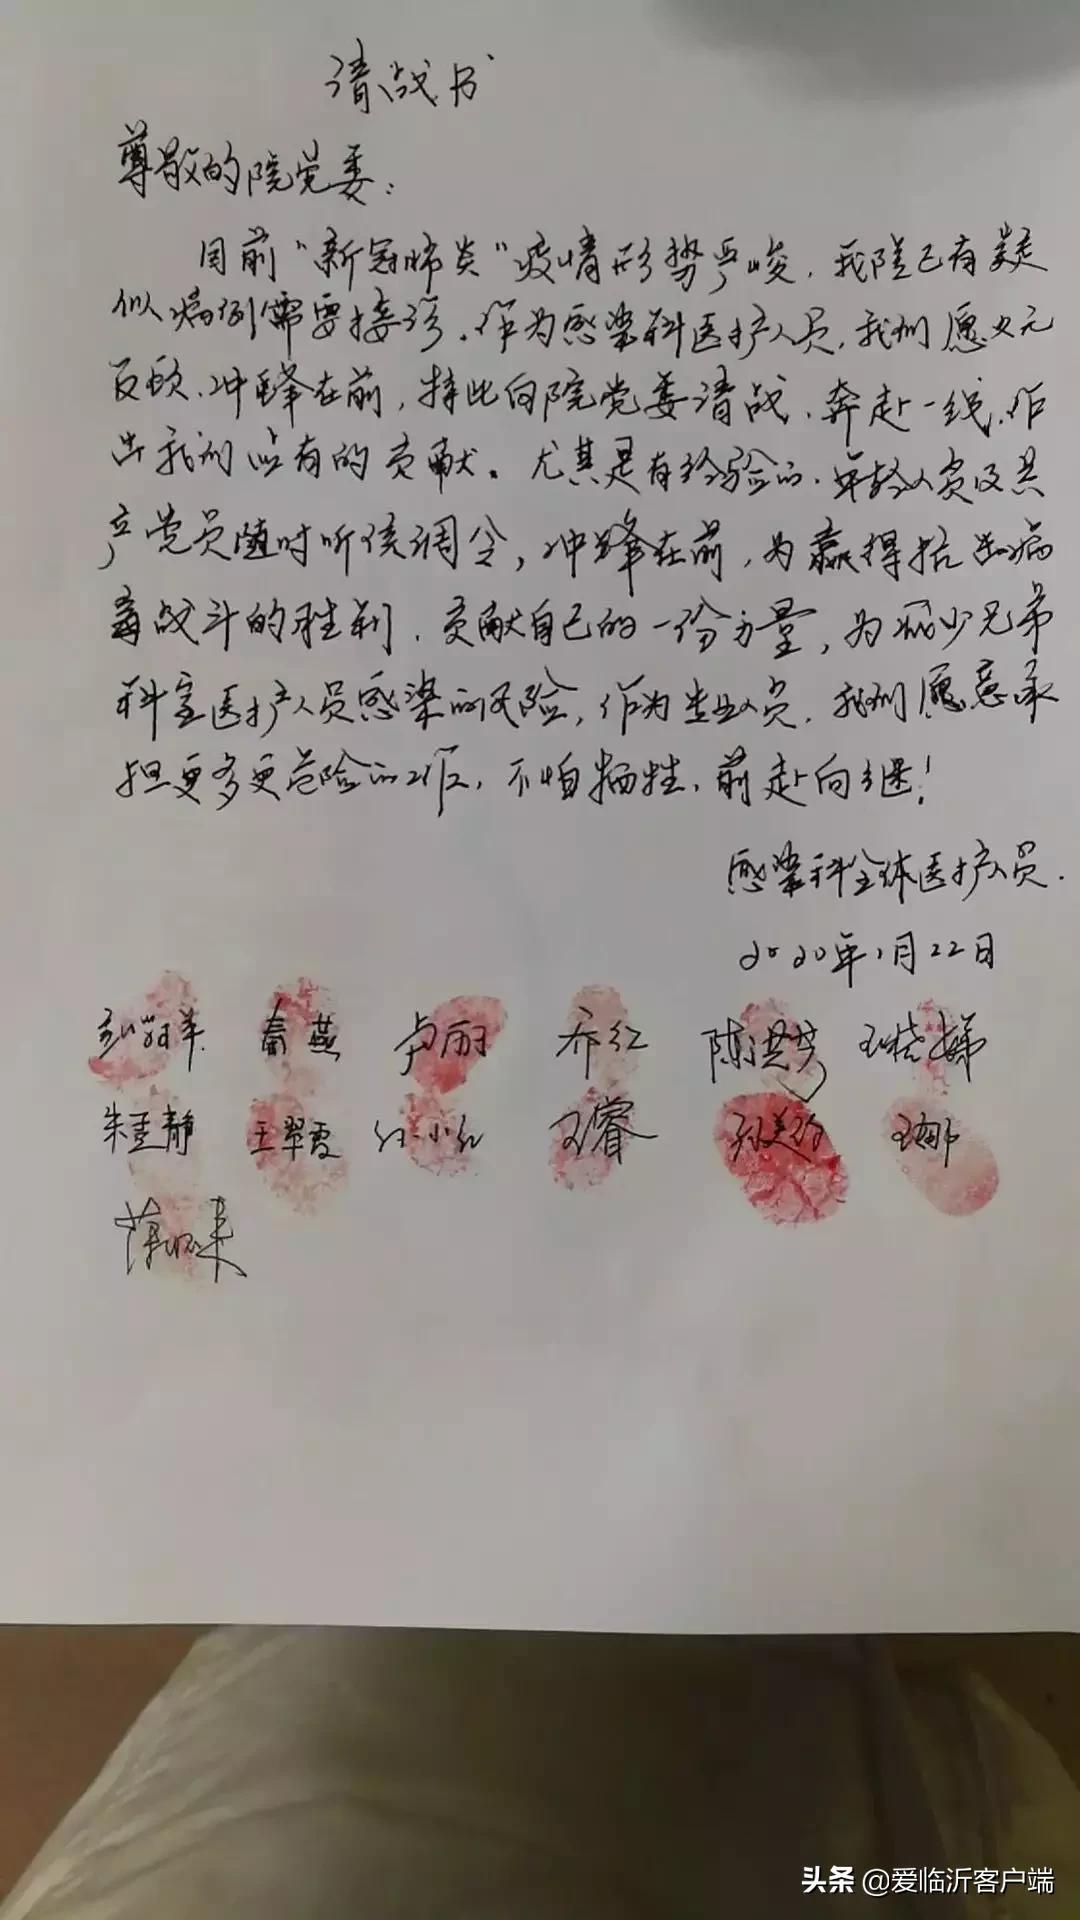 请战书
尊敬的院党委：
目前“新冠肺炎”疫情形势严峻，我院已有疑
似病例需要接诊，作为感染科医护人员，我们愿义无
反顾，冲锋在前，特此向院党委请战，奔赴一线，作
出我们应有的贡献。尤其是有经验的，年轻人员及共
产党员随时听候调令，冲锋在前，为赢得抗击病
毒战斗的胜利，贡献自己的一份力量，为减少兄弟
科室医护人员感染的风险，作为专业人员，我们愿意承
担更多更危险的工作，不怕牺牲，前赴向继！
感染科全体医护人员.
2020年1月22日
秦燕 卢丽 乔红 陈洪 王晓娣
朱孟静 王翠霞 小红 王睿 孙美 王娜
薛
头条 @爱临沂客户端